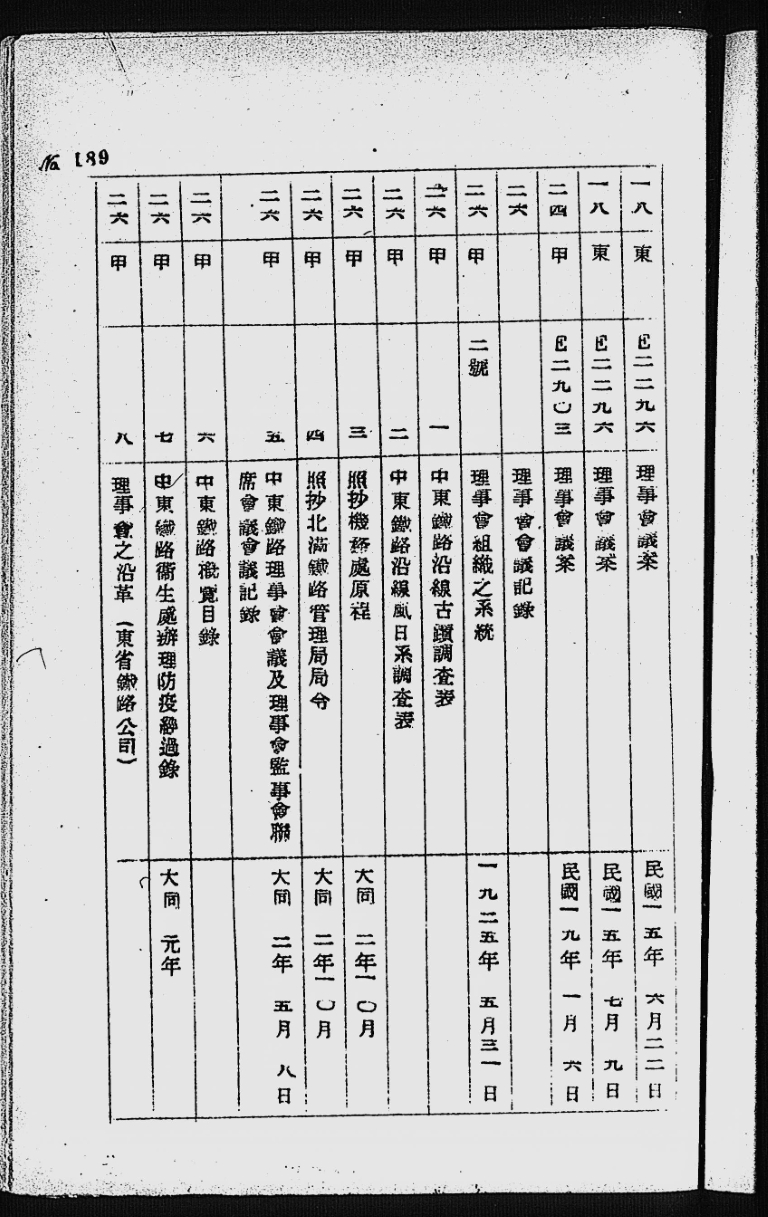 No. 189
一八 東 E二二九六 理事會議案 民國一五年 六月二二日
一八 東 E二二九六 理事會議案 民國一五年 七月 九日
二四 甲 E二九〇三 理事會議案 民國一九年 一月 六日
二六 理事會會議記錄
二六 甲 二號 理事會組織之系統 一九二五年 五月三一日
二六 甲 一 中東鐵路沿線古蹟調查表
二六 甲 二 中東鐵路沿線風日系調查表
二六 甲 三 照抄機務處原程 大同 二年一〇月
二六 甲 四 照抄北滿鐵路管理局局令 大同 二年一〇月
二六 甲 五 中東鐵路理事會會議及理事會監事會聯 大同 二年 五月 八日
席會議會議記錄
二六 甲 六 中東鐵路概覽目錄
二六 甲 七 中東鐵路衞生處辦理防疫經過錄 大同 元年
二六 甲 八 理事會之沿革（東省鐵路公司）